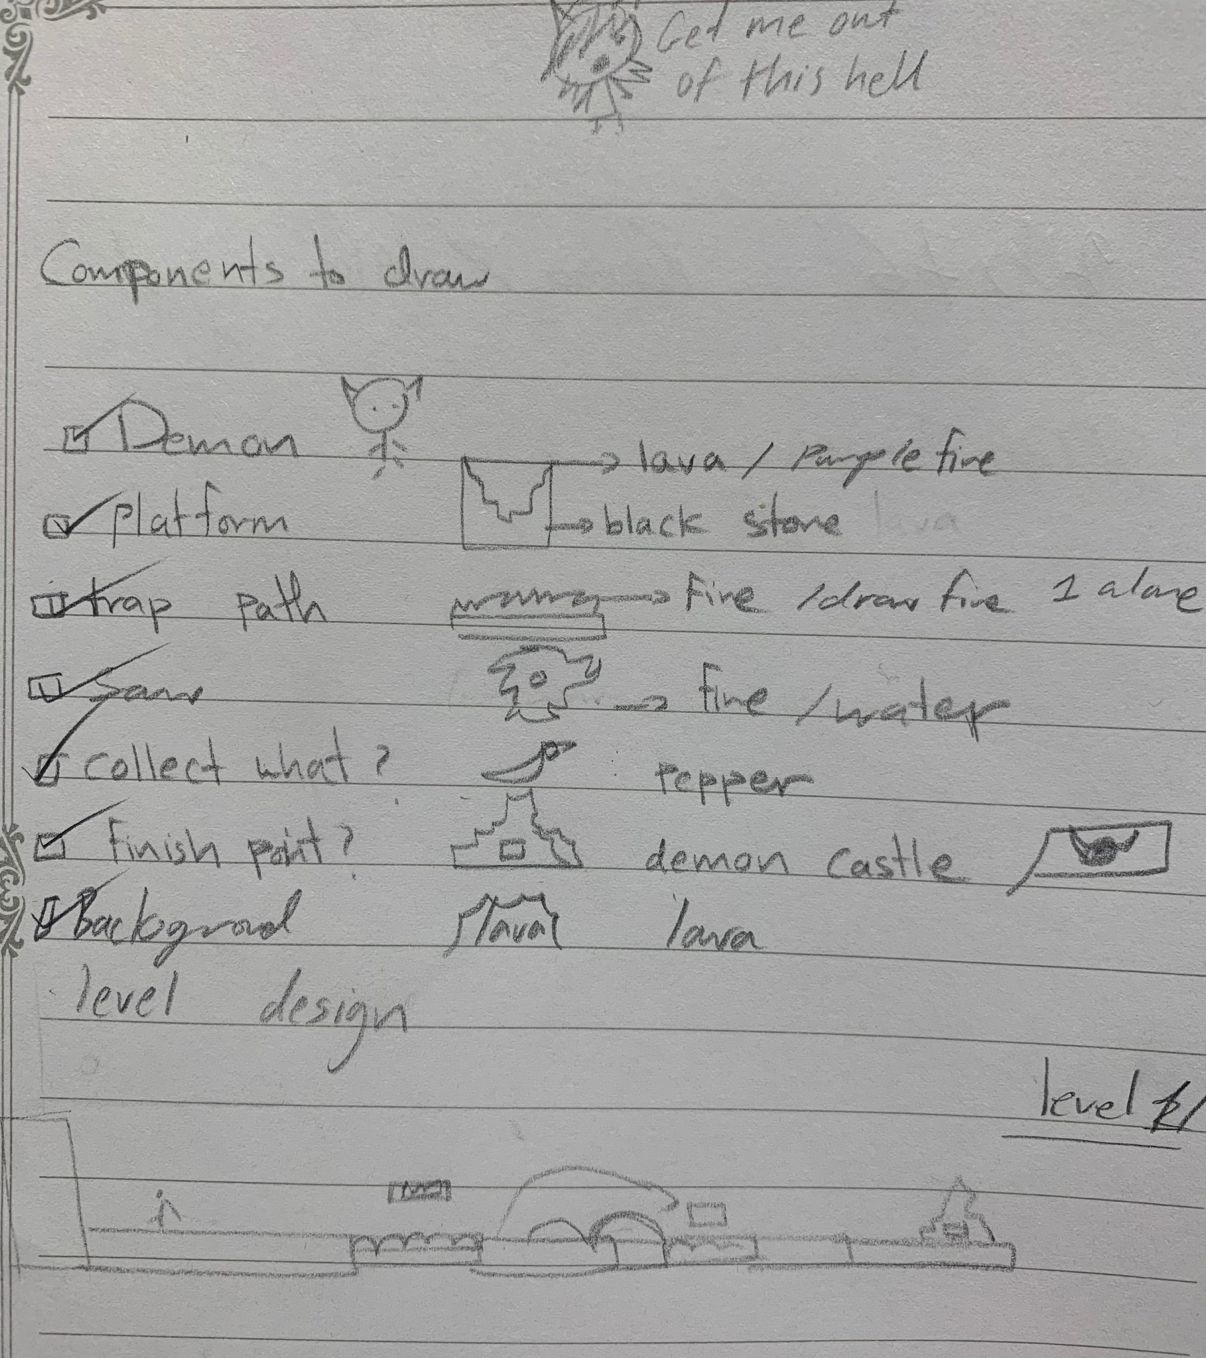 Get me out
of this hell
Components to draw
Demon
lava / Purple fire
platform
black stone lava
trap path
Fire /draw fire 1 alone
Saw
fire /water
collect what?
Pepper
finish point?
demon castle
Background
lava
lava
level design
level